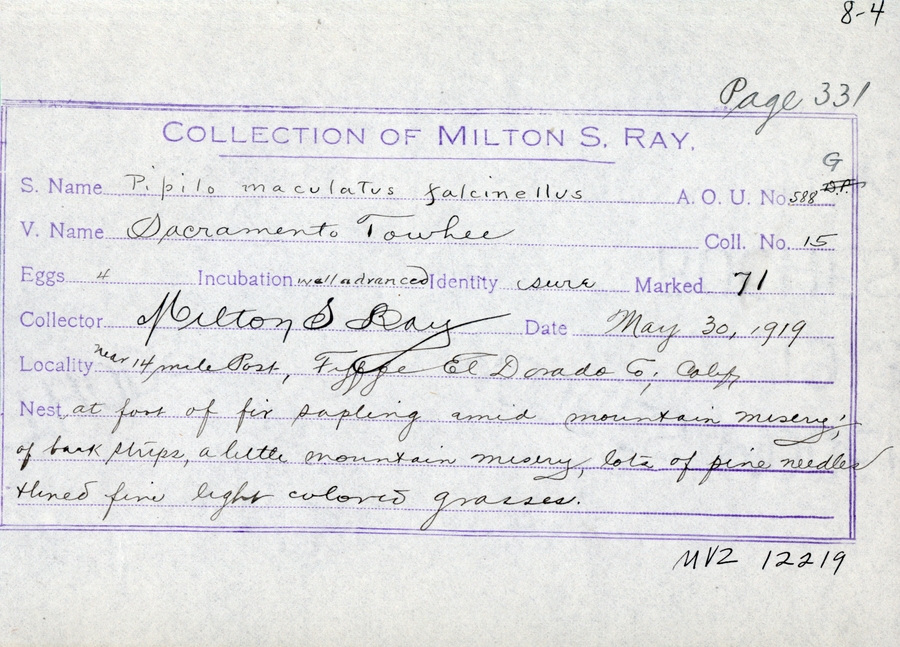 8-4
Page 331
COLLECTION OF MILTON S. RAY.
G
S. Name Pipilo maculatus falcinellus A. O. U. No. 588
V. Name Sacramento Towhee Coll. No. 15
Eggs 4 Incubation well advanced Identity sure Marked 71
Collector Milton S Ray Date May 30, 1919
Locality near 14 mile Post, Fyffe El Dorado Co; Calif,
Nest at foot of fir sapling amid mountain misery;
of bark strips, a little mountain misery, lots of pine needles
+lined fine light colored grasses.
MVZ 12219